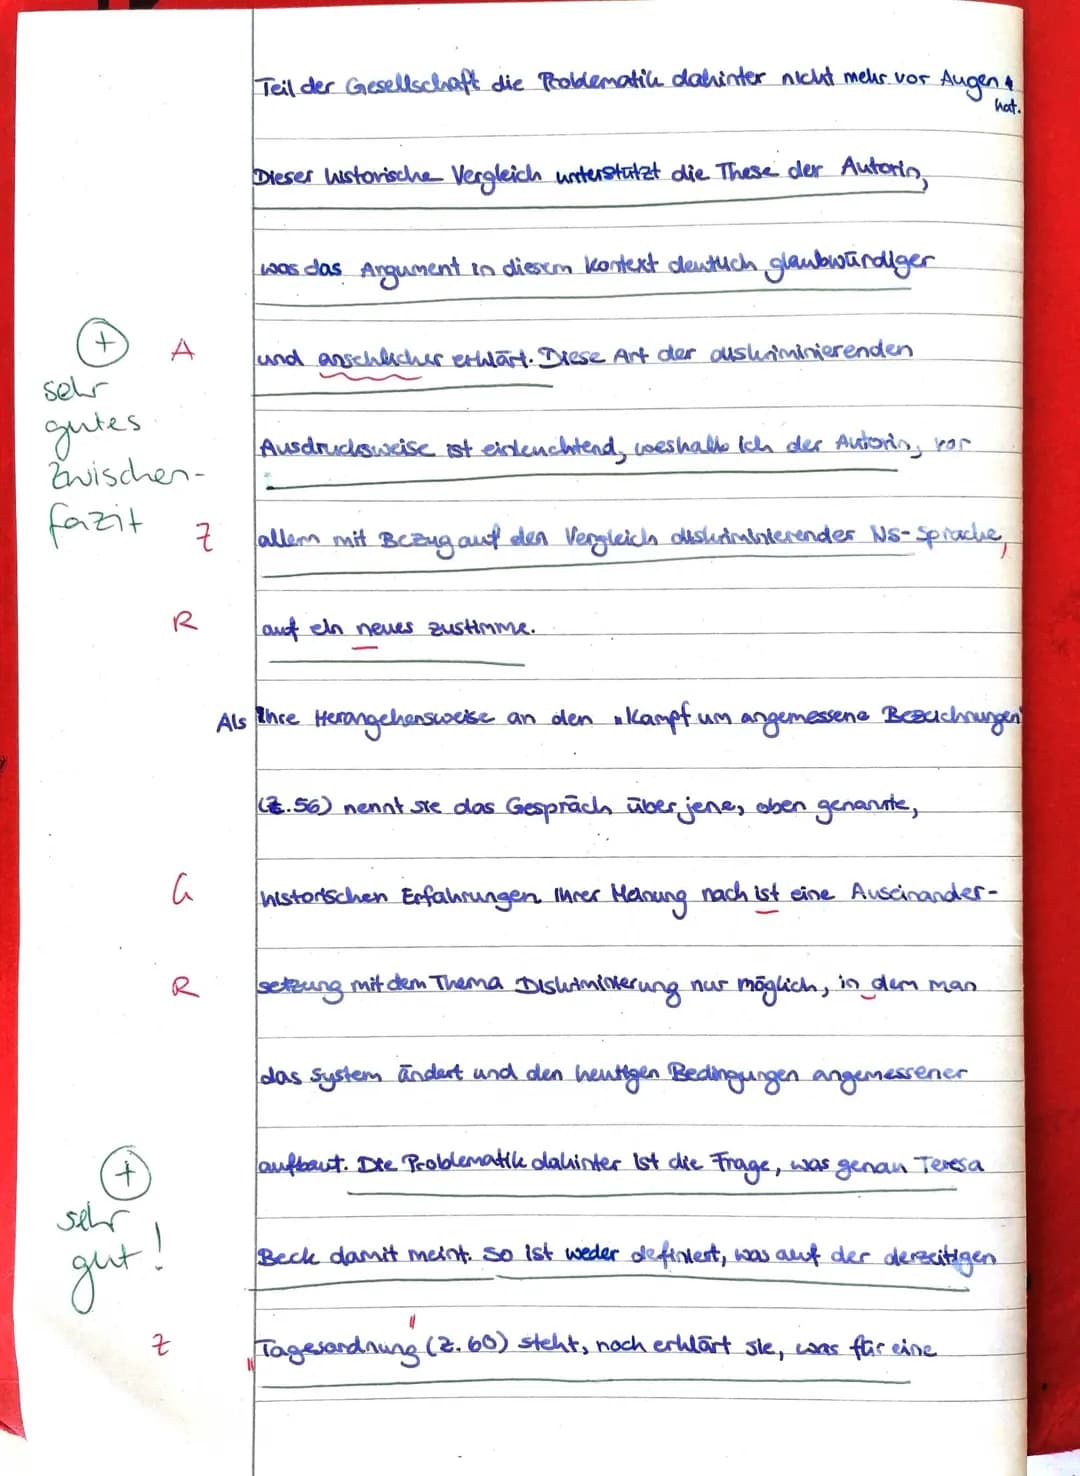 Teil der Gesellschaft die Problematik dahinter nicht mehr vor Augen
hat.
Dieser historische Vergleich unterstützt die These der Autorin,
was das Argument in diesem Kontext deutlich glaubwürdiger
+ A und anschlicher erklärt. Diese Art der diskriminierenden
sehr
gutes
Zwischen-
fazit
Ausdrucksweise ist einleuchtend, weshalb ich der Autorin, vor
Z allem mit Bezug auf den Vergleich diskriminierender NS-Sprache,
R auf ein neues zustimme.
Als Ihre Herangehensweise an den "Kampf um angemessene Bezeichnungen"
(Z.56) nennt sie das Gespräch über jene, oben genannte,
G historischen Erfahrungen. Ihrer Meinung nach ist eine Auseinander-
R setzung mit dem Thema Diskriminierung nur möglich, in dem man
das System ändert und den heutigen Bedingungen angemessener
+ aufbaut. Die Problematik dahinter ist die Frage, was genau Teresa
sehr
gut!
Beck damit meint. So ist weder definiert, was auf der derzeitigen
Z "Tagesordnung" (Z.60) steht, noch erklärt sie, was für eine